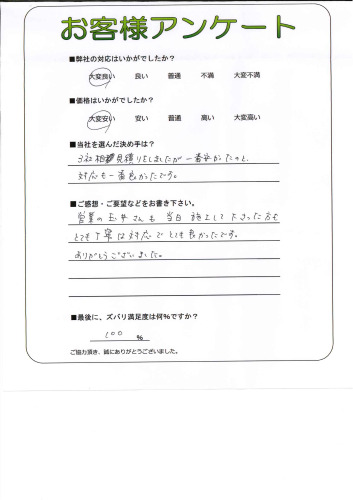 お客様アンケート
■弊社の対応はいかがでしたか？
大変良い 良い 普通 不満 大変不満
■価格はいかがでしたか？
大変安い 安い 普通 高い 大変高い
■当社を選んだ決め手は？
3社相見積りをしましたが一番安かったのと、
対応も一番良かったです。
■ご感想・ご要望などをお書き下さい。
営業の玉井さんも当日施工して下さった方も
とても丁寧な対応でとても良かったです。
ありがとうございました。
■最後に、ズバリ満足度は何%ですか？
100 %
ご協力頂き、誠にありがとうございました。